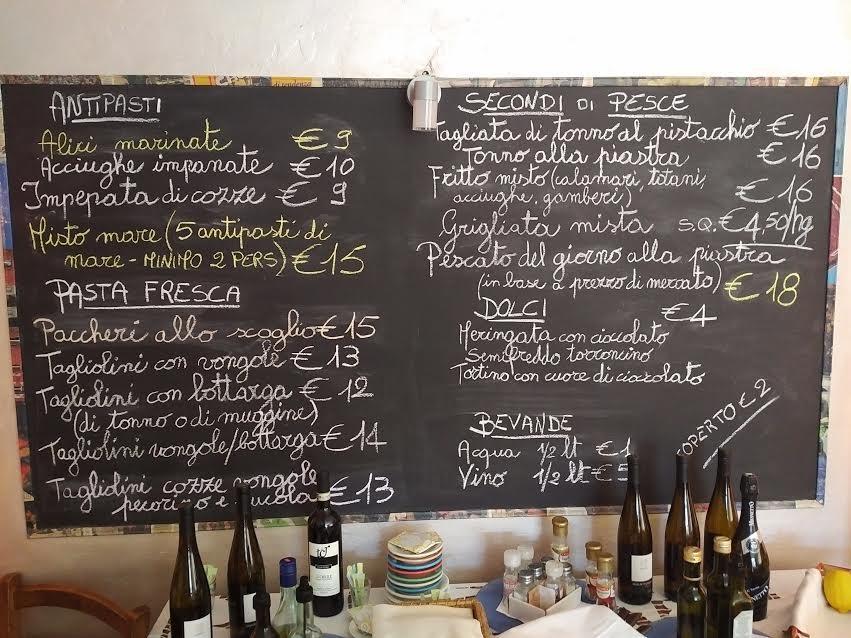 ANTIPASTI
Alici marinate € 9
Acciughe impanate € 10
Impepata di cozze € 9
Misto mare (5 antipasti di
mare - MINIMO 2 PERS) € 15
PASTA FRESCA
Paccheri allo scoglio € 15
Tagliolini con vongole € 13
Tagliolini con bottarga € 12
(di tonno o di muggine)
Tagliolini vongole/bottarga € 14
Tagliolini cozze vongole
pecorino e rucola € 13
SECONDI DI PESCE
Tagliata di tonno al pistacchio € 16
Tonno alla piastra € 16
Fritto misto (calamari, totani,
acciughe, gamberi) € 16
Grigliata mista S.Q. € 4,50/hg
Pescato del giorno alla piastra
(in base a prezzo di mercato) € 18
DOLCI € 4
Meringata con cioccolato
Semifreddo torroncino
Tortino con cuore di cioccolato
BEVANDE
Acqua 1/2 lt € 1
Vino 1/2 lt € 5
COPERTO € 2